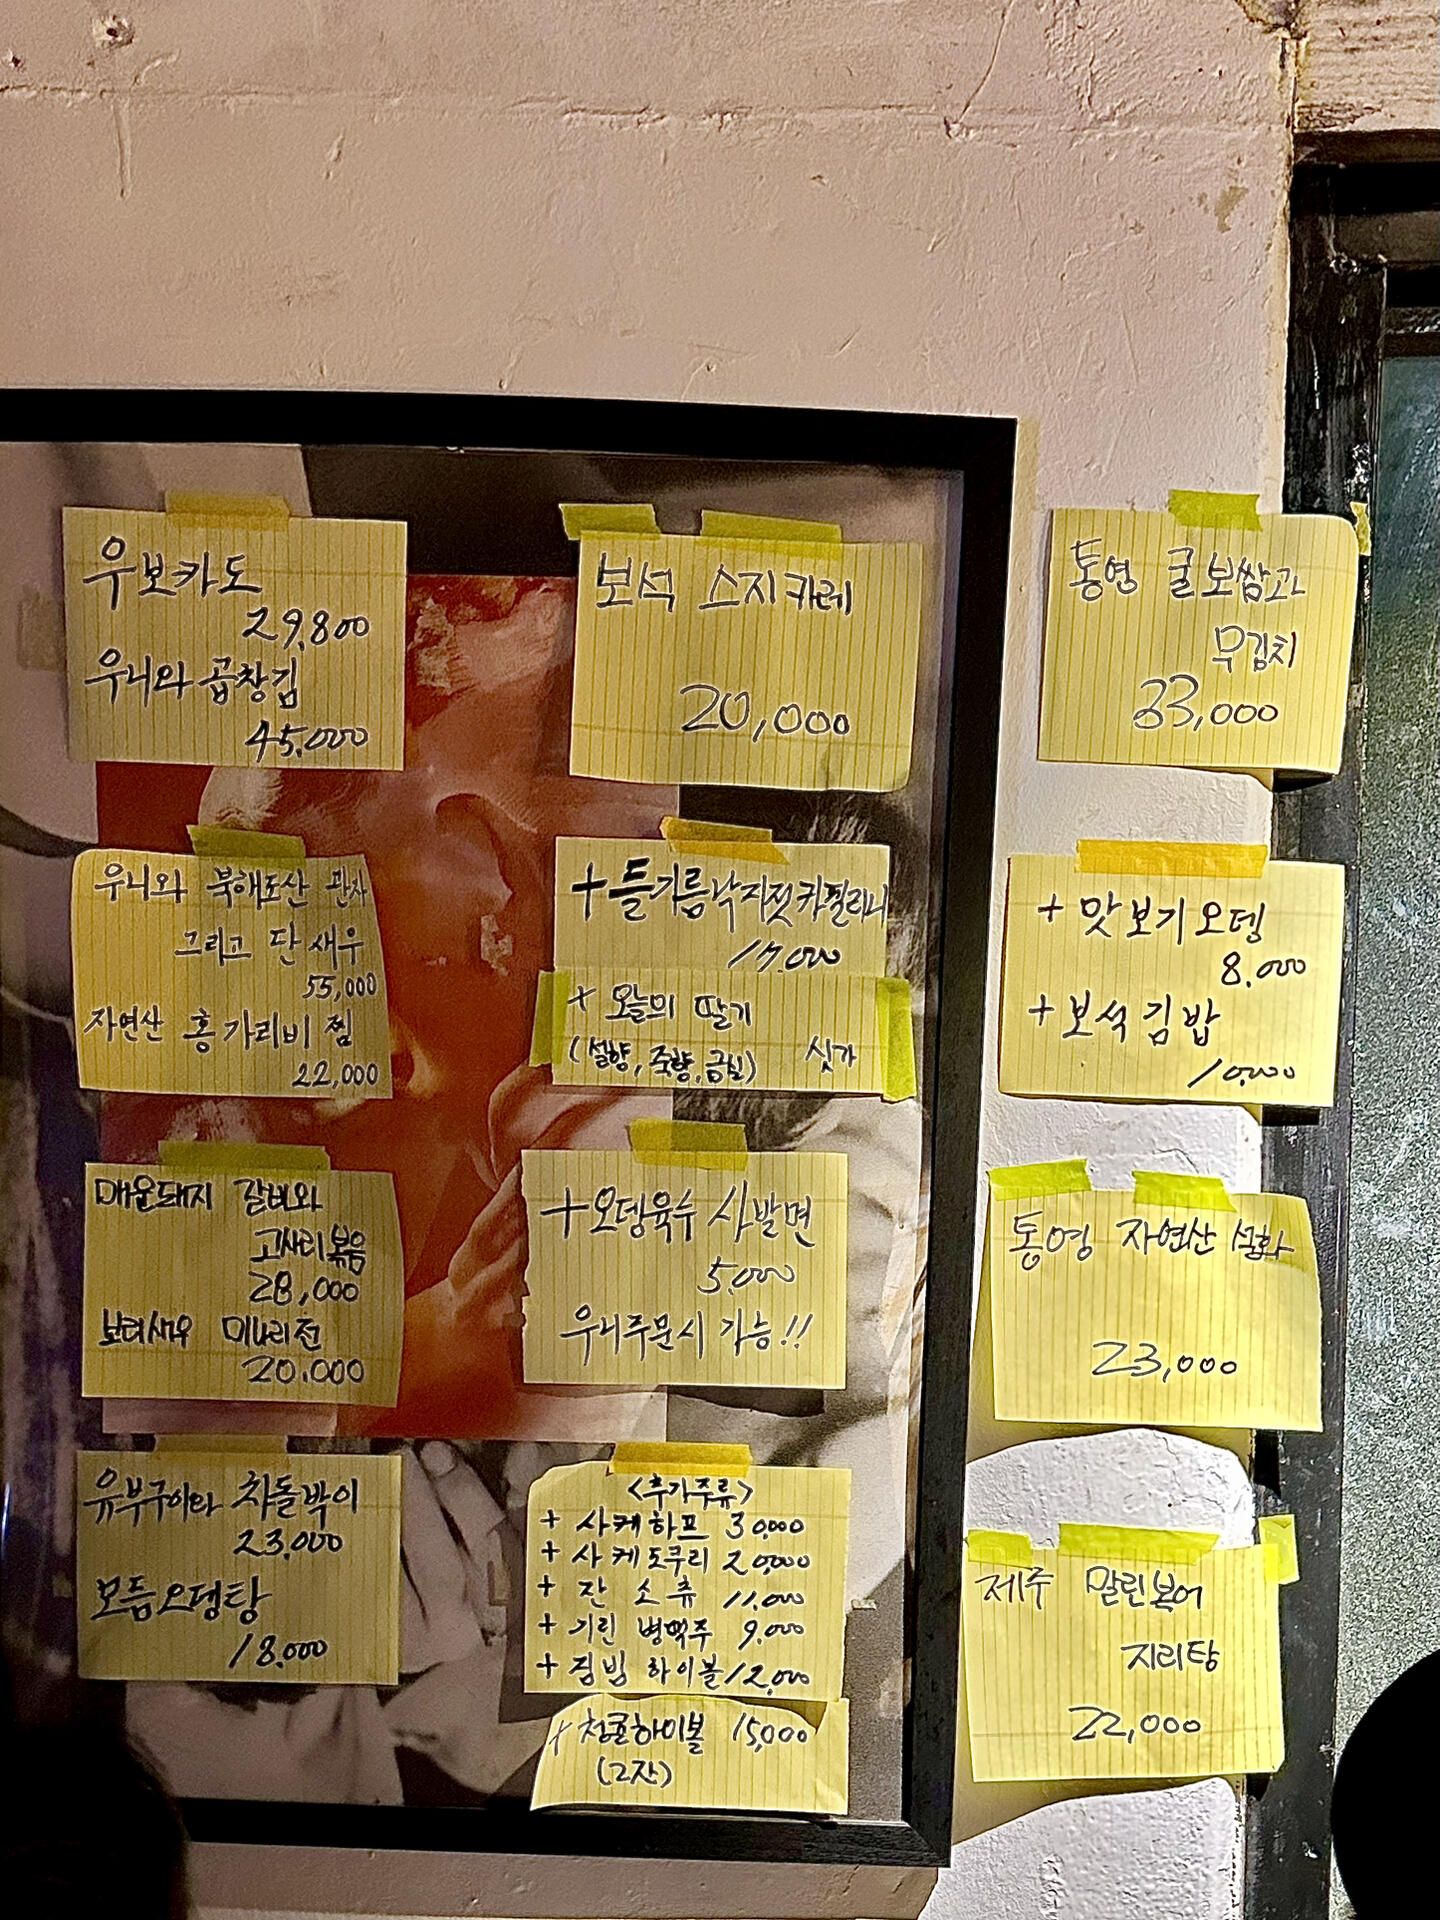 우보카도
29,800
우니와 곱창김
45,000
우니와 북해도산 관자
그리고 단새우
55,000
자연산 홍가리비 찜
22,000
매운돼지 갈비와
고사리볶음
28,000
보리새우 미나리전
20,000
유부구이와 차돌박이
23,000
모듬오뎅탕
18,000
보석 스지카레
20,000
+ 들기름낙지젓카펠리니
17,000
+ 오늘의 딸기
(설향, 죽향, 금실) 싯가
+오뎅육수 사발면
5,000
우니주문시 가능!!
<추가주류>
+ 사케하프 30,000
+ 사케도쿠리 20,000
+ 잔 소츄 11,000
+ 기린 병맥주 9,000
+ 짐빔 하이볼 12,000
+ 청귤하이볼 15,000
(2잔)
통영 굴보쌈과
무김치
33,000
+ 맛보기오뎅
8,000
+ 보석김밥
10,000
통영 자연산 석화
23,000
제주 말린복어
지리탕
22,000